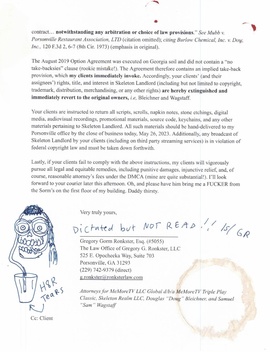 contract... notwithstanding any arbitration or choice of law provisions." See Mubb v.
Porsonville Restaurant Association, LTD (citation omitted), citing Barlow Chemical, Inc. v. Doig,
Inc., 120 F.3d 2, 6-7 (8th Cir. 1973) (emphasis in original).
The August 2019 Option Agreement was executed on Georgia soil and did not contain a "no
take-backsies" clause (rookie mistake!). The Agreement therefore contains an implied take-back
provision, which my clients hereby immediately invoke. Accordingly, your clients' (and their
assigns') rights, title, and interest in Skeleton Landlord (including but not limited to copyright,
trademark, distribution, merchandising, or any other rights) are hereby extinguished and
immediately revert to the original owners, i.e., Bleichner and Wagstaff.
Your clients are instructed to return all scripts, scrolls, napkin notes, stone etchings, digital
media, audiovisual recordings, promotional materials, source code, keychains, and any other
materials pertaining to Skeleton Landlord. All such materials should be hand-delivered to my
Porsonville office by the close of business today, May 26, 2023. Additionally, any broadcast of
Skeleton Landlord by your clients (including on third party streaming services) is in violation of
federal copyright law and must be taken down forthwith.
Lastly, if your clients fail to comply with the above instructions, my clients will vigorously
pursue all legal and equitable remedies, including punitive damages, injunctive relief, and, of
course, reasonable attorney's fees under the DMCA (mine are quite substantial!). I'll look
forward to your courier later this afternoon. Oh, and please have him bring me a FUCKER from
the Sorm's on the first floor of my building. Daddy thirsty.
Very truly yours,
Dictated but NOT READ!! /s/ GR
Gregory Gorm Ronkster, Esq. (#3055)
The Law Office of Gregory G. Ronkster, LLC
525 E. Opocheeka Way, Suite 703
Porsonville, GA 31293
(229) 742-9379 (direct)
g.ronkster@ronksterlaw.com
Attorneys for McMoreTV LLC Global d/b/a McMoreTV Triple Play
Classic, Skeleton Realm LLC, Douglas "Doug" Bleichner, and Samuel
"Sam" Wagstaff
H&R
TEARS
Cc: Client